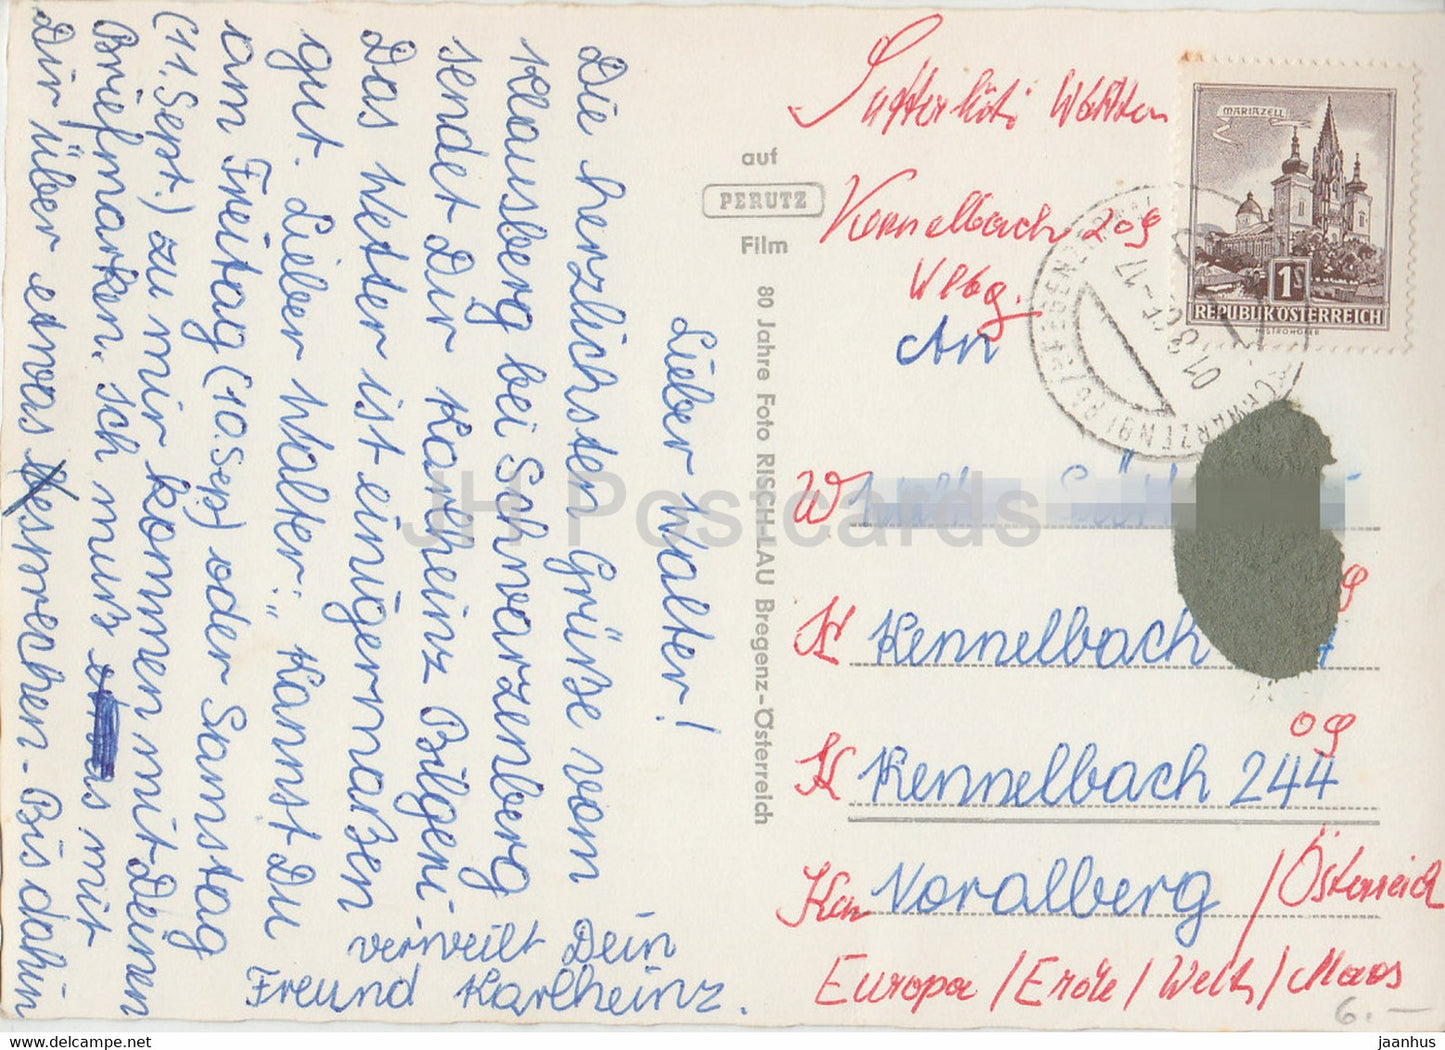 Lieber Walter!
Die herzlichsten Grüße vom
Klausberg bei Schwarzenberg
sendet Dir Karlheinz Bilgeri.
Das Wetter ist einigermaßen
gut. Lieber Walter: „Kannst Du
am Freitag (10. Sep) oder Samstag
(11. Sept.) zu mir kommen mit Deinen
Briefmarken. Ich muß mit
Dir über etwas besprechen - Bis dahin
verweilt Dein
Freund Karlheinz.
auf
PERUTZ
Film
80 Jahre Foto RISCH-LAU Bregenz-Österreich
Kennelbach 209
Vlbg.
An
W
K Kennelbach
9
09
K Kennelbach 244
Voralberg / Österreich
Europa / Erde / Welt /
MARIAZELL
1S
REPUBLIK ÖSTERREICH
6.-
JH Postcards
eu.jhpostcards.com
jaanhus